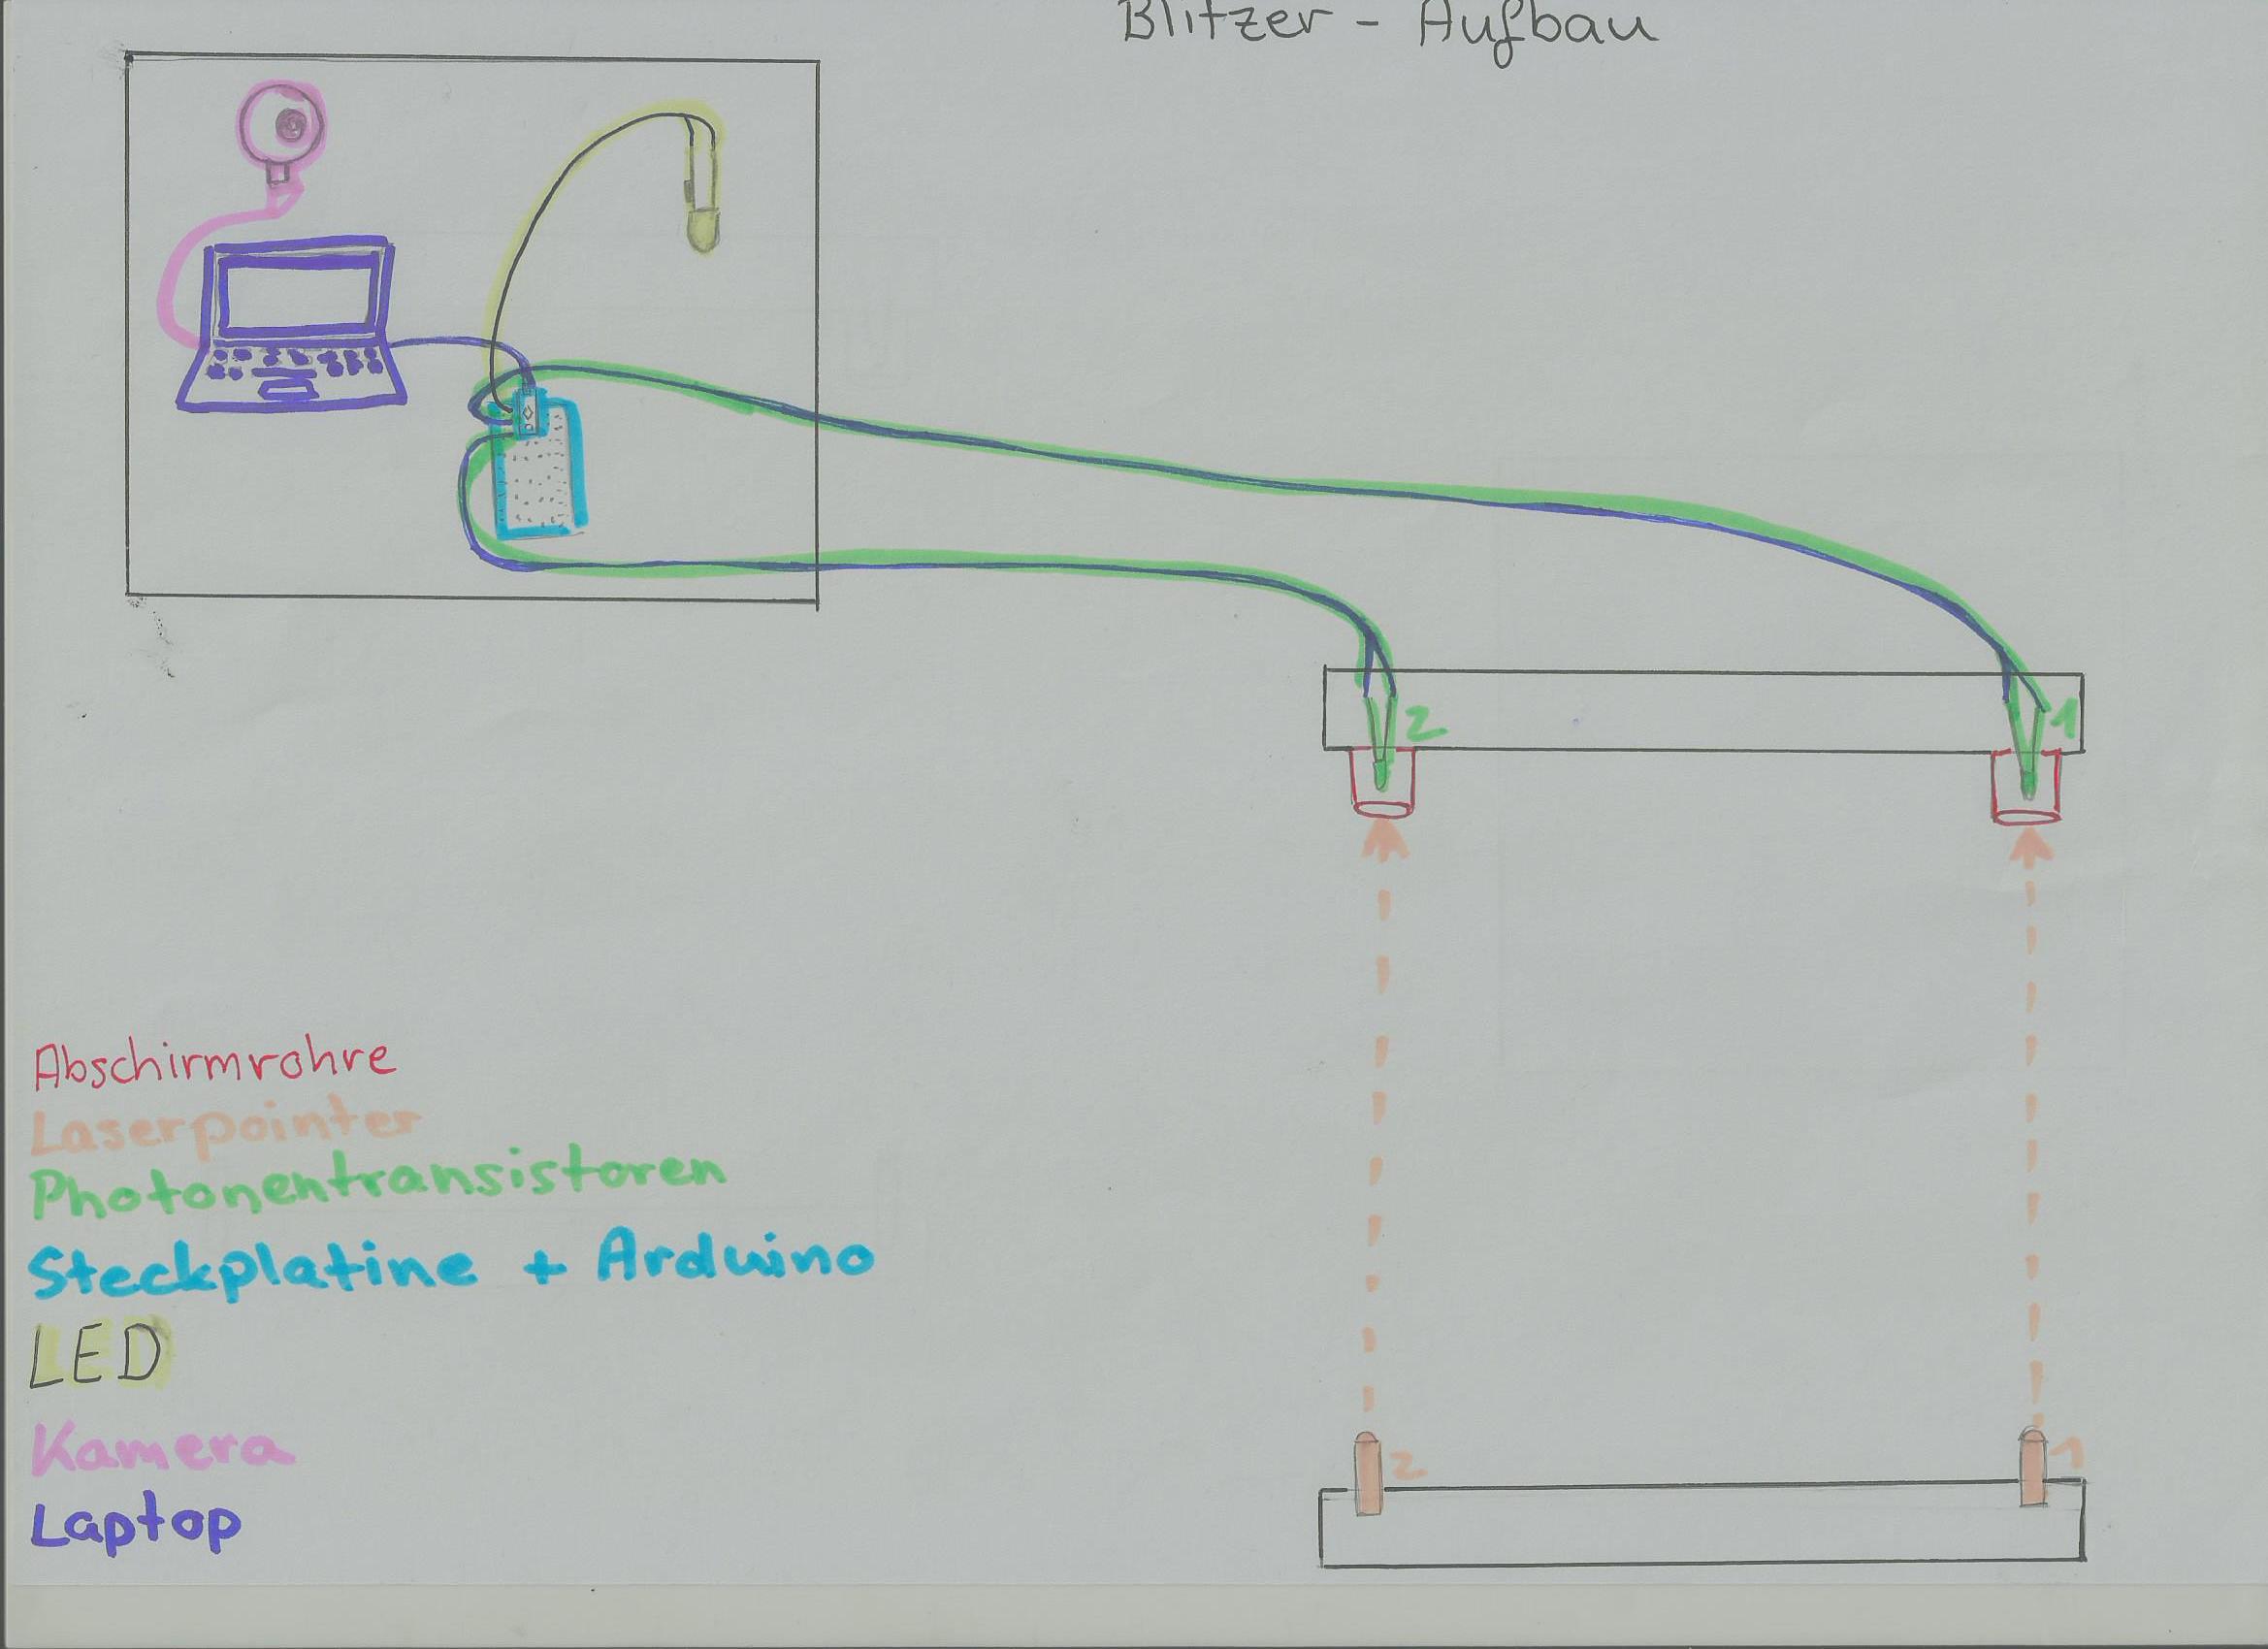 Blitzer - Aufbau
2
1
2
1
Abschirmrohre
Laserpointer
Photonentransistoren
Steckplatine + Arduino
LED
Kamera
Laptop